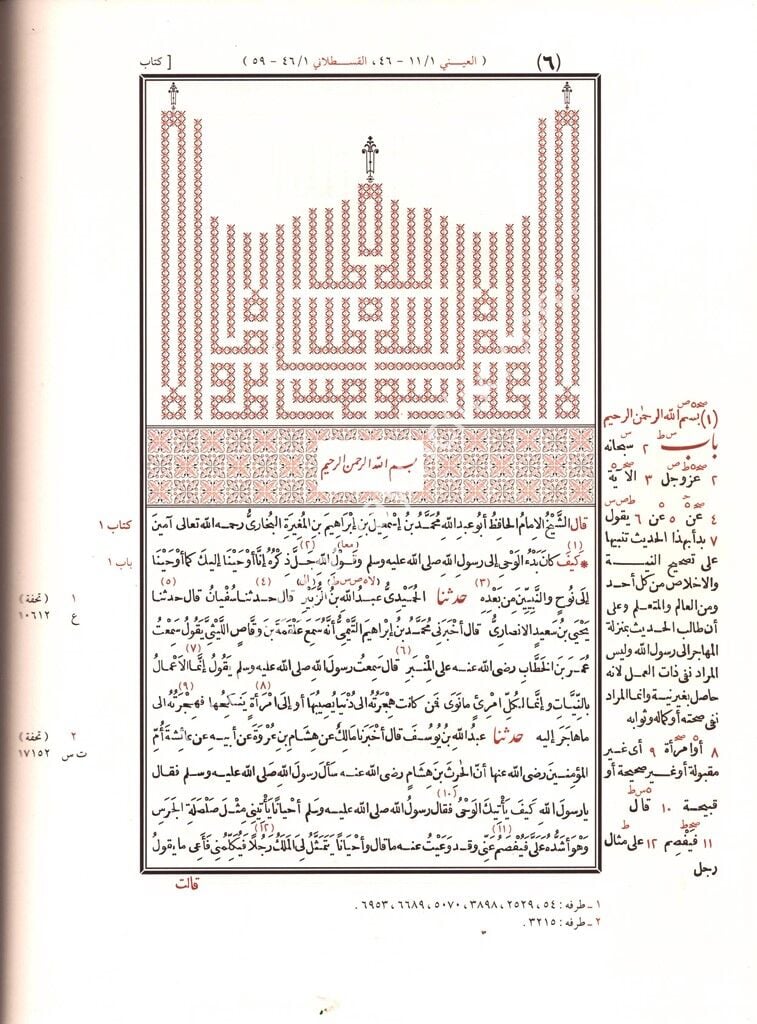 [ كتاب
( العيني ١١/١ - ٤٦، القسطلاني ٤٦/١ - ٥٩ )
(٦)
بسم الله الرحمن الرحيم
قال الشَّيْخُ الإمامُ الحافظُ أبُو عبدِ اللهِ مُحَمَّدُ بنُ إسْمٰعِيلَ بنِ إبْراهِيمَ بنِ المُغِيرَةِ البُخارىُّ رحمه الله تعالى آمين
(١) كَيْفَ كانَ بَدْءُ الوَحْىِ إلى رسولِ اللهِ صلى الله عليه وسلم وقَوْلُ (٢) اللهِ جَلَّ ذِكْرُهُ إنَّا أَوْحَيْنا إليكَ كما أوحَيْنا
إلى نُوحٍ والنَّبِيِّينَ من بَعْدِهِ (٣) حدثنا الحُمَيْدِىُّ عبدُ اللهِ بنُ الزُّبَيْرِ (٤) قال حدثنا سُفْيانُ قال حدثنا (٥)
يَحْيَى بنُ سَعِيدٍ الانصارىُّ قال أخبرنى مُحَمَّدُ بنُ إبراهيمَ التَّيْمِىُّ أنَّهُ سَمِعَ عَلْقَمَةَ بنَ وقَّاصٍ اللَّيْثِىَّ يَقُولُ سَمِعْتُ
عُمَرَ بنَ الخَطَّابِ رضى الله عنه على المِنْبَرِ (٦) قال سَمِعتُ رسولَ اللهِ صلى الله عليه وسلم يَقُولُ (٧) إنَّما الأعْمالُ
بالنِّيَّاتِ وإنَّما لِكُلِّ امْرِئٍ مانَوَى فَمن كانت هِجْرَتُهُ الى دُنْيا يُصِيبُها (٨) أو إلى امْرَأَةٍ (٩) يَنْكِحُها فهِجْرَتُهُ الى
ما هاجَرَ إليه حدثنا عبدُ اللهِ بنُ يُوسُفَ قال أخْبَرَنا مالِكٌ عن هِشامِ بنِ عُرْوَةَ عن أبِيهِ عن عائشةَ أُمِّ
المُؤْمنِينَ رضى الله عنها أنَّ الحٰرِثَ بنَ هِشامٍ رضى الله عنه سألَ رسولَ اللهِ صلى الله عليه وسلم فقال
يارسولَ اللهِ كَيْفَ يَأْتِيكَ الوَحْىُ فقال (١٠) رسولُ اللهِ صلى الله عليه وسلم أحْيانًا يَأْتِينِى مِثْلَ صَلْصَلَةِ الجَرَسِ
وهْوَ أَشَدُّهُ عَلَىَّ فَيُفْصَمُ (١١) عَنِّى وقد وَعَيْتُ عنه ما قال وأحْيانًا يَتَمَثَّلُ لِىَ المَلَكُ رَجُلًا (١٢) فَيُكَلِّمُنِى فَأَعِى ما يَقُولُ
قالت
(١) بسم الله الرحمن الرحيم
باب ٢ سبحانه
٢ عز وجل ٣ الآية
٤ عن ٥ عن ٦ يقول
٧ بدأ بهذا الحديث تنبيها
على تصحيح النية
والاخلاص من كل أحد
ومن العالم والمتعلم وعلى
أن طالب الحديث بمنزلة
المهاجر الى رسول الله وليس
المراد نفى ذات العمل لانه
حاصل بغير نية وانما المراد
نفى صحته أو كماله وثوابه
٨ أو امرأة ٩ أى غير
مقبولة أو غير صحيحة أو
قبيحة ١٠ قال
١١ فَيَفْصِمُ ١٢ على مثال
رجل
كتاب ١
باب ١
١ ( تحفة )
١٠٦١٢ ع
٢ ( تحفة )
١٧١٥٢ ت س
١ - طرفه : ٥٤، ٢٥٢٩، ٣٨٩٨، ٥٠٧٠، ٦٦٨٩، ٦٩٥٣ .
٢ - طرفه : ٣٢١٥ .